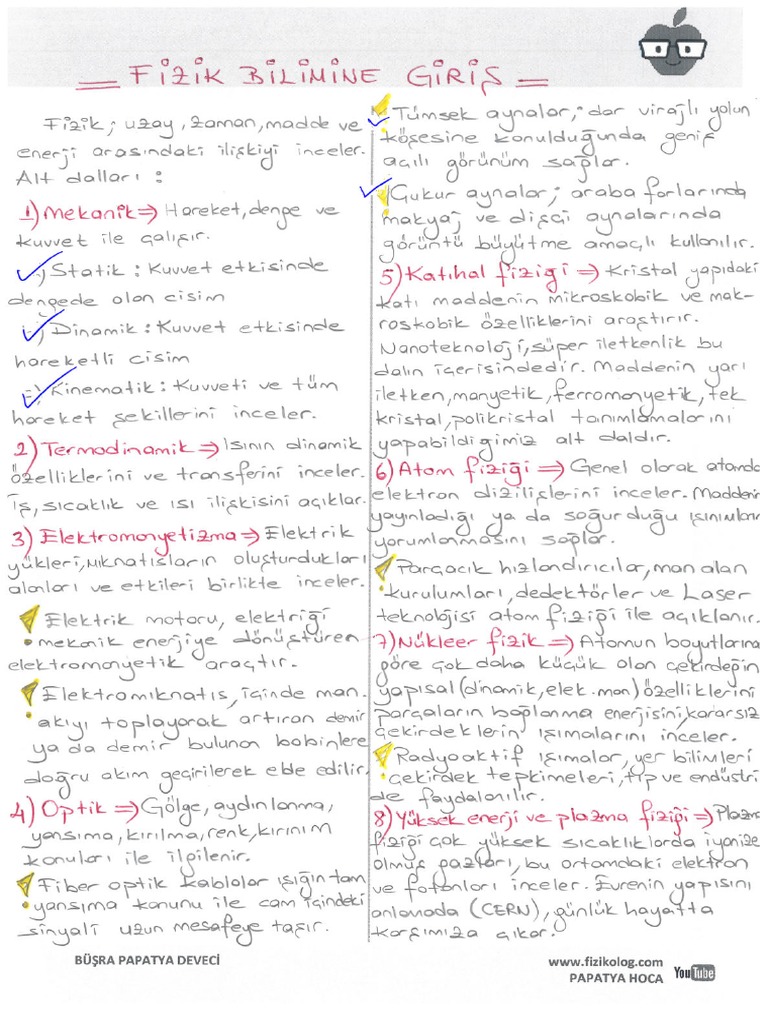 FİZİK BİLİMİNE GİRİŞ
Fizik; uzay, zaman, madde ve
enerji arasındaki ilişkiyi inceler.
Alt dalları:
1) Mekanik⇒ Hareket, denge ve
kuvvet ile çalışır.
Statik: Kuvvet etkisinde
dengede olan cisim
Dinamik: Kuvvet etkisinde
hareketli cisim
Kinematik: Kuvveti ve tüm
hareket şekillerini inceler.
2) Termodinamik⇒ Isının dinamik
özelliklerini ve transferini inceler.
İş, sıcaklık ve ısı ilişkisini açıklar.
3) Elektromanyetizma⇒ Elektrik
yükleri, mıknatısların oluşturdukları
alanları ve etkileri birlikte inceler.
Elektrik motoru, elektriği
mekanik enerjiye dönüştüren
elektromanyetik araçtır.
Elektromıknatıs, içinde man.
akıyı toplayarak artıran demir
ya da demir bulunan bobinlere
doğru akım geçirilerek elde edilir.
4) Optik⇒ Gölge, aydınlanma,
yansıma, kırılma, renk, kırınım
konuları ile ilgilenir.
Fiber optik kablolar ışığın tam
yansıma kanunu ile cam içindeki
sinyali uzun mesafeye taşır.
Tümsek aynalar; dar virajlı yolun
köşesine konulduğunda geniş
açılı görünüm sağlar.
Çukur aynalar; araba farlarında
makyaj ve dişçi aynalarında
görüntü büyütme amaçlı kullanılır.
5) Katıhal fiziği⇒ Kristal yapıdaki
katı maddenin mikroskobik ve mak-
roskobik özelliklerini araştırır.
Nanoteknoloji, süper iletkenlik bu
dalın içerisindedir. Maddenin yarı
iletken, manyetik, ferromanyetik, tek
kristal, polikristal tanımlamalarını
yapabildiğimiz alt daldır.
6) Atom fiziği⇒ Genel olarak atomda
elektron dizilişlerini inceler. Maddenin
yayınladığı ya da soğurduğu ışınımların
yorumlanmasını sağlar.
Parçacık hızlandırıcılar, man alan
kurulumları, dedektörler ve Laser
teknolojisi atom fiziği ile açıklanır.
7) Nükleer fizik⇒ Atomun boyutlarına
göre çok daha küçük olan çekirdeğin
yapısal (dinamik, elek. man) özelliklerini
parçaların bağlanma enerjisini, kararsız
çekirdeklerin ışımalarını inceler.
Radyoaktif ışımalar, yer bilimleri
çekirdek tepkimeleri, tıp ve endüstri
de faydalanılır.
8) Yüksek enerji ve plazma fiziği⇒ Plazma
fiziği çok yüksek sıcaklıklarda iyonize
olmuş gazları, bu ortamdaki elektron
ve fotonları inceler. Evrenin yapısını
anlamada (CERN), günlük hayatta
karşımıza çıkar.
BÜŞRA PAPATYA DEVECİ
www.fizikolog.com
PAPATYA HOCA
YouTube